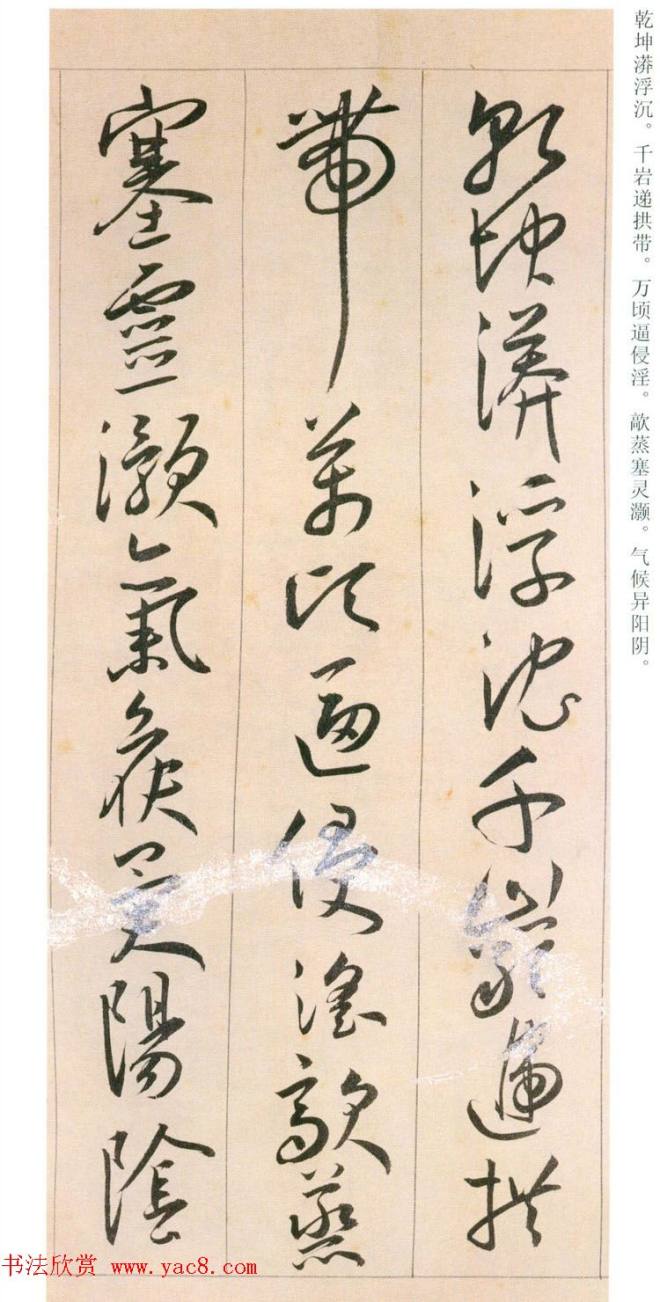 乾坤漭浮沉。千岩递拱带。万顷逼侵淫。歊蒸塞灵灏。气候异阳阴。
乾坤漭浮沈千巖遞拱
帶萬頃逼侵淫歊蒸
塞靈灝氣候異陽陰
书法欣赏 www.yac8.com